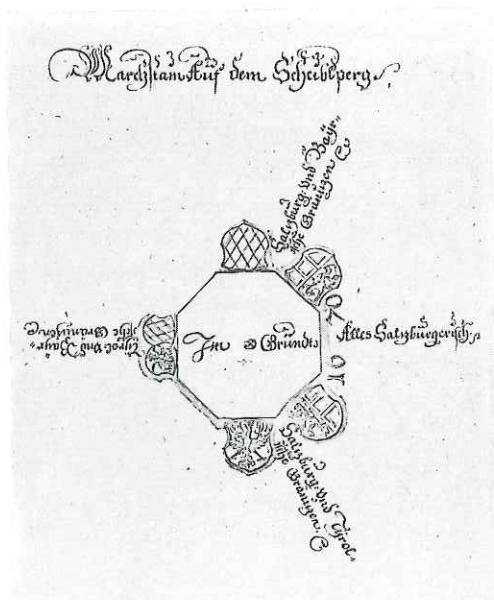 Marchstain Auf dem Scheiblperg.
Saltzburg: und Bäyr=
ische Gränitzen
70
Im Grundt
Alles Saltzburgerisch.
16
Tyrol: und Bayr=
ische Gränitzen
Saltzburg: und Tyrol=
ische Gränitzen